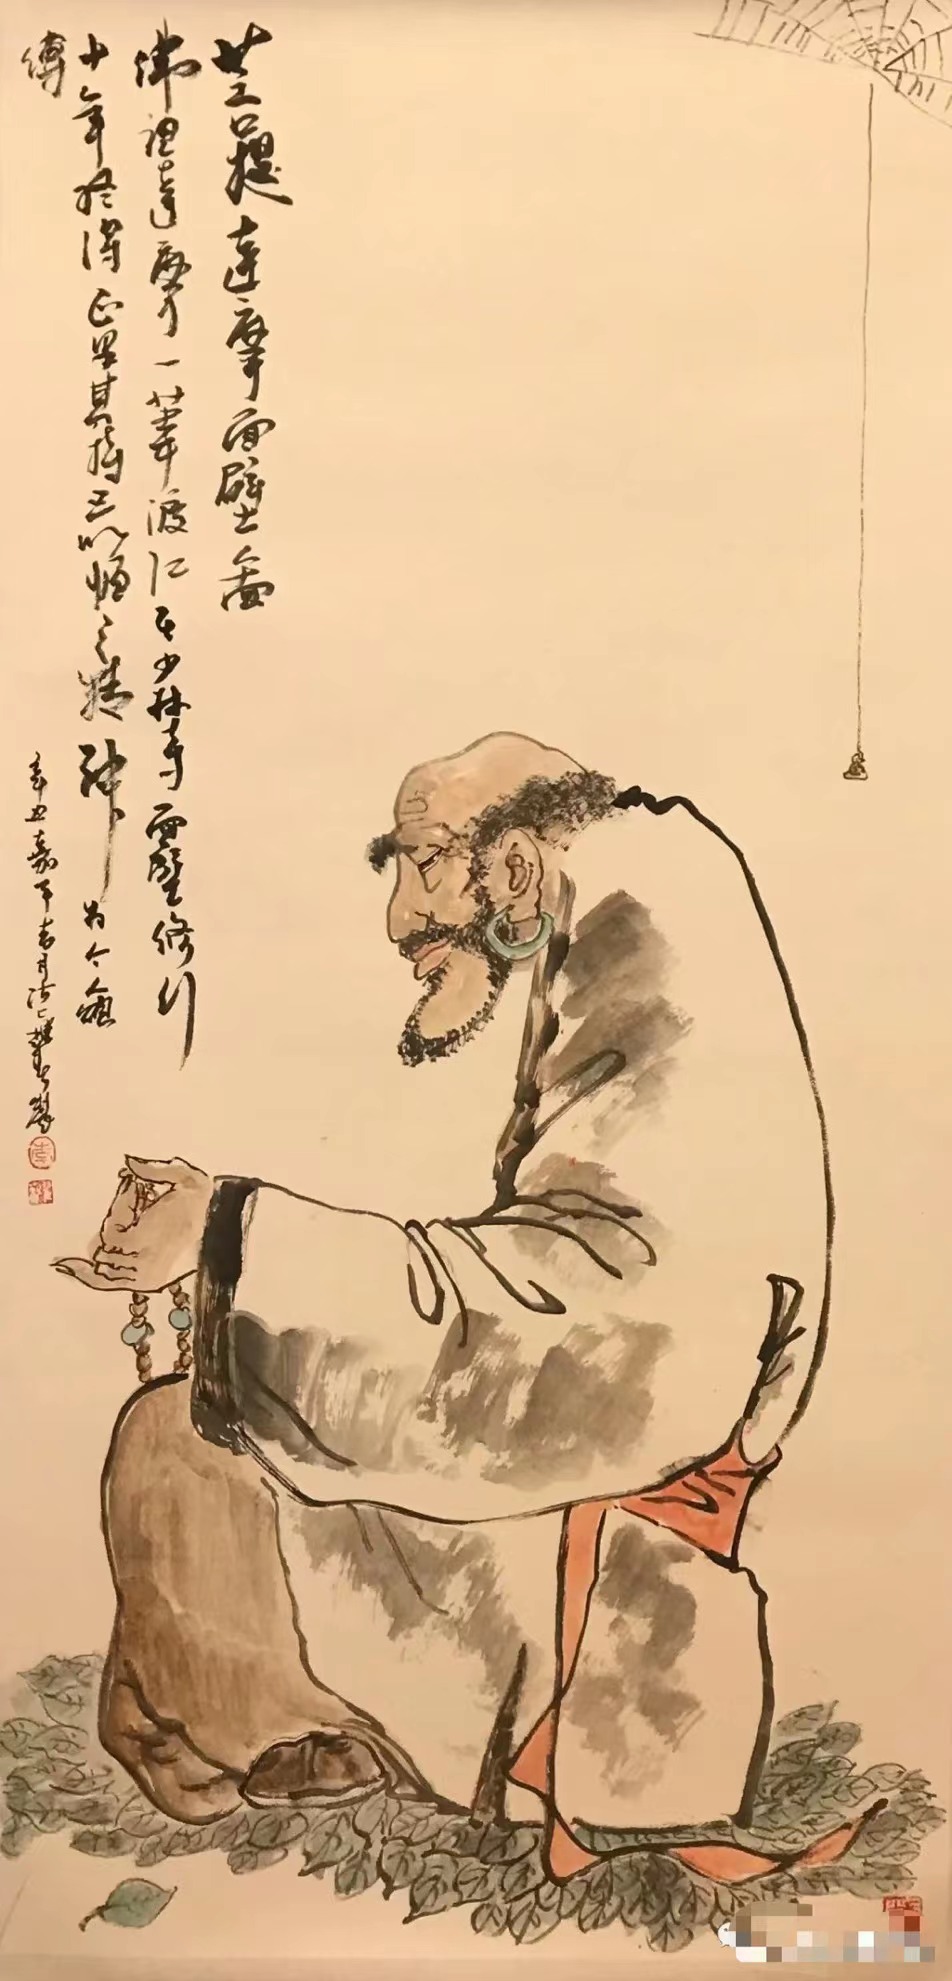 菩提達摩面壁圖
佛祖達摩一葦渡江至少林寺面壁修行
十年终得正果其持之以恒之精神为今
傳
辛丑嘉平吉月